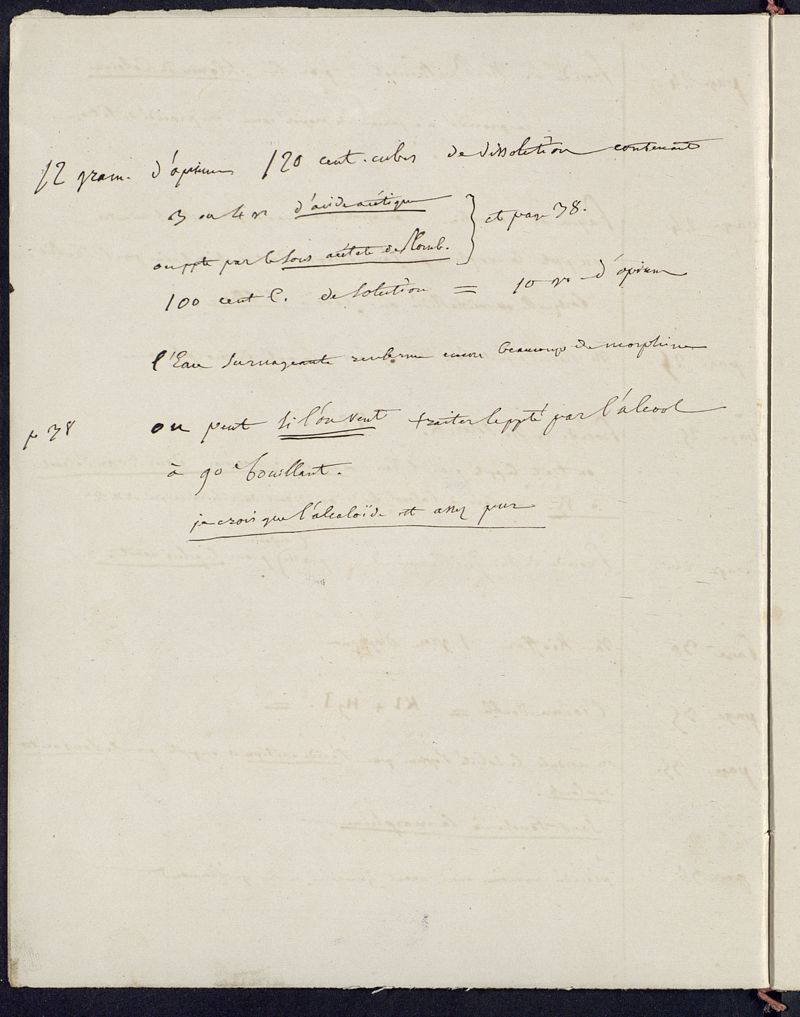 12 gram. d'opium 120 cent. cubes de dissolution contenant
3 ou 4 gr d'acide acétique
et page 38.
on ppte par le sous acétate de Plomb.
100 cent C. de solution = 10 gr d'opium
l'Eau surnageante renferme encore beaucoup de morphine
p 38 on peut si l'on veut traiter le ppté par l'alcool
à 90° bouillant.
je crois que l'alcaloïde est assez pur